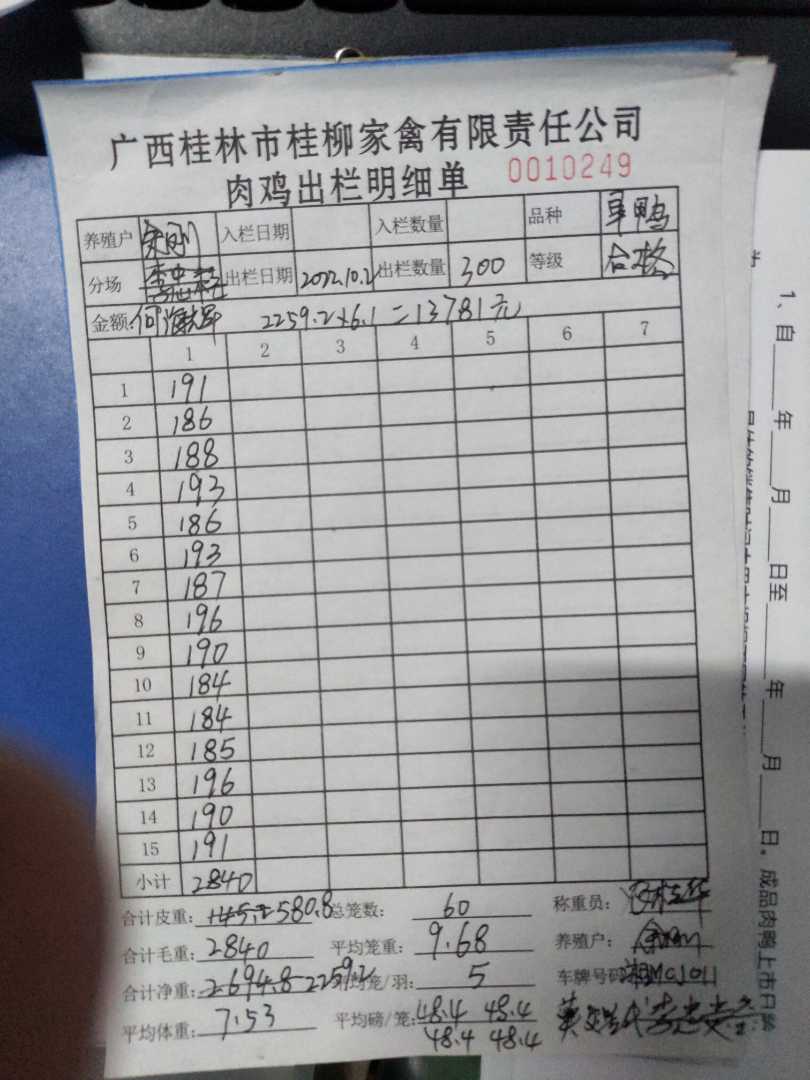 广西桂林市桂柳家禽有限责任公司
肉鸡出栏明细单 0010249
养殖户 入栏日期 入栏数量 品种 单鸭
分场 出栏日期 2022.10.2 出栏数量 300 等级 合格
金额: 2259.2×6.1=13781元
1 2 3 4 5 6 7
1 191
2 186
3 188
4 193
5 186
6 193
7 187
8 196
9 190
10 184
11 184
12 185
13 196
14 190
15 191
小计 2840
合计皮重: 145.2 580.8 总笼数: 60 称重员:
合计毛重: 2840 平均笼重: 9.68 养殖户:
合计净重: 2694.8 2259.2 平均笼/羽: 5 车牌号码 湘MC1011
平均体重: 7.53 平均磅/笼: 48.4 48.4
48.4 48.4
1、自 年 月 日至 年 月 日。成品肉鸭上市日